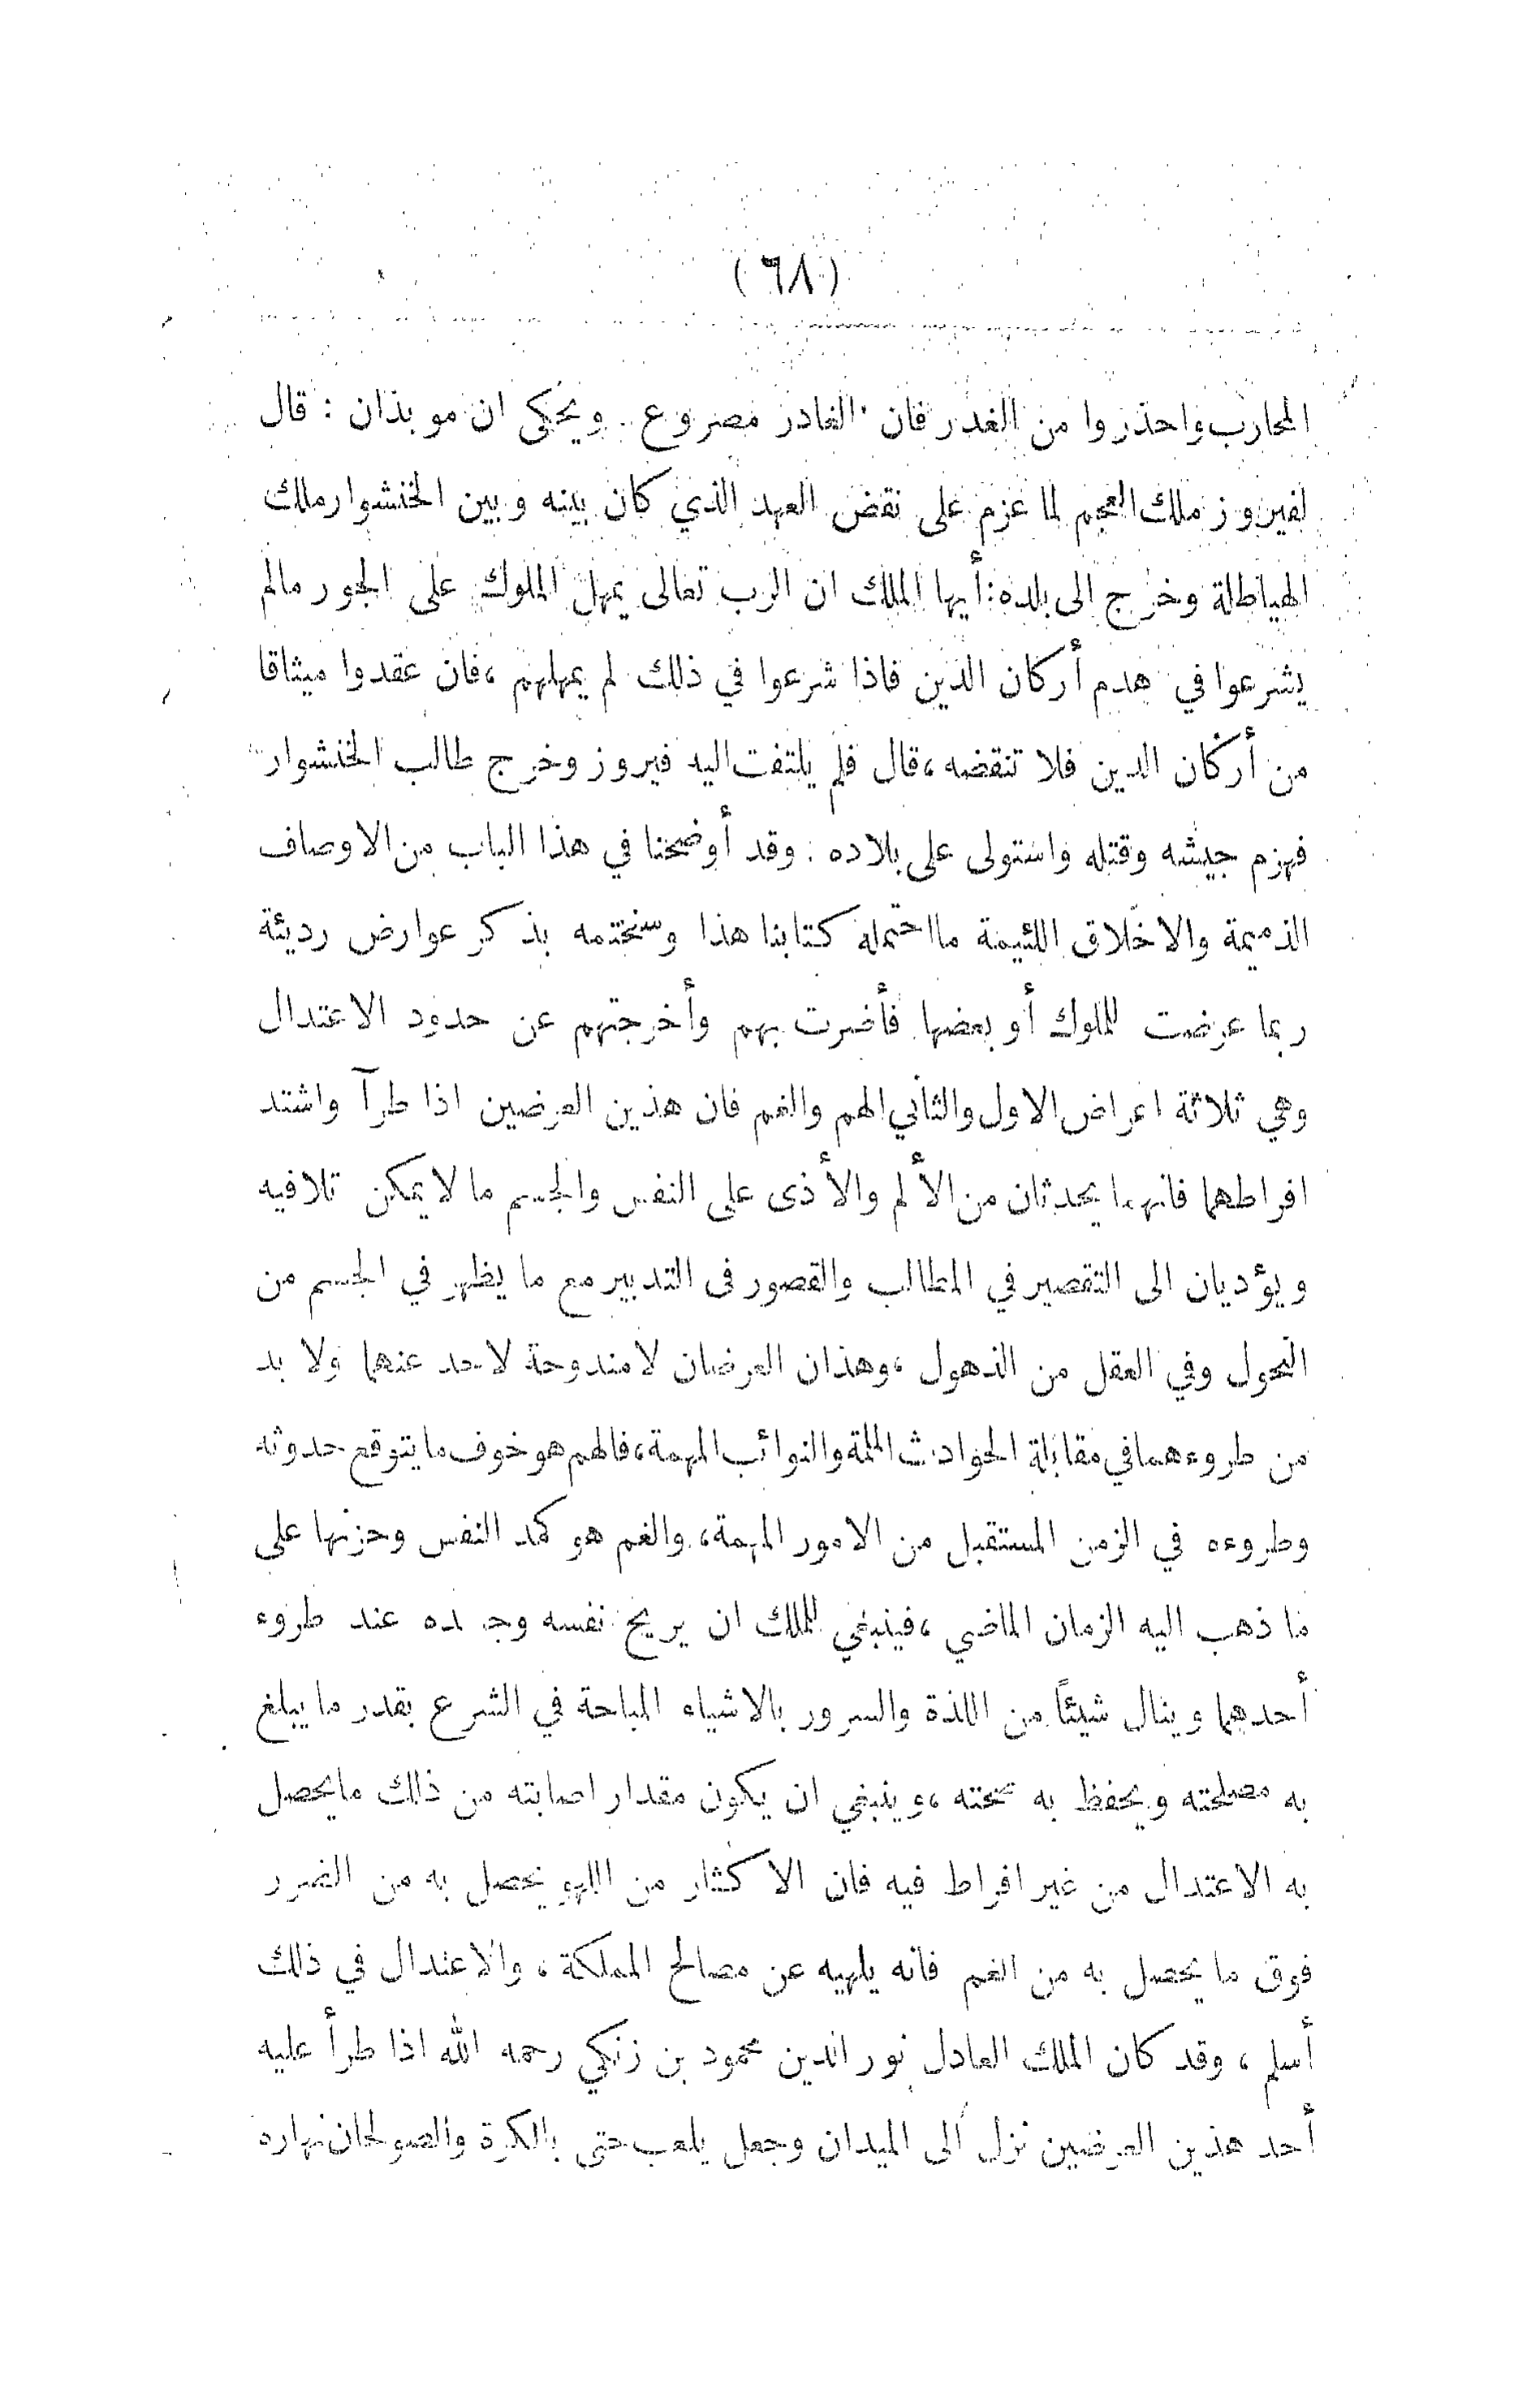 (٦٨)
المحارب واحذروا من الغدر فان الغادر مصروع . ويحكى ان موبذان : قال
لفيروز ملك العجم لما عزم على نقض العهد الذي كان بينه وبين الخنشوار ملك
الهياطلة وخرج الى بلده : أيها الملك ان الرب تعالى يمهل الملوك على الجور مالم
يشرعوا في هدم أركان الدين فاذا شرعوا في ذلك لم يمهلهم ، فان عقدوا ميثاقا
من أركان الدين فلا تنقضه ، قال فلم يلتفت اليه فيروز وخرج طالب الخنشوار
فهزم جيشه وقتله واستولى على بلاده . وقد أوضحنا في هذا الباب من الاوصاف
الذميمة والاخلاق اللئيمة مااحتمله كتابنا هذا وسنختمه بذكر عوارض رديئة
ربما عرضت للملوك أو بعضها فأضرت بهم وأخرجتهم عن حدود الاعتدال
وهي ثلاثة اعراض الاول والثاني الهم والغم فان هذين العرضين اذا طرآ واشتد
افراطهما فانهما يحدثان من الألم والأذى على النفس والجسم ما لا يمكن تلافيه
ويؤديان الى التقصير في المطالب والقصور فى التدبير مع ما يظهر في الجسم من
النحول وفي العقل من الذهول ، وهذان العرضان لا مندوحة لاحد عنهما ولا بد
من طروءهما في مقابلة الحوادث الملمة والنوائب المهمة ، فالهم هو خوف ما يتوقع حدوثه
وطروءه في الزمن المستقبل من الامور المهمة ، والغم هو كمد النفس وحزنها على
ما ذهب اليه الزمان الماضي ، فينبغي للملك ان يريح نفسه وجـ ـده عند طروء
أحدهما وينال شيئاً من اللذة والسرور بالاشياء المباحة في الشرع بقدر ما يبلغ
به مصلحته ويحفظ به صحته ، وينبغي ان يكون مقدار اصابته من ذلك مايحصل
به الاعتدال من غير افراط فيه فان الاكثار من اللهو يحصل به من الضرر
فوق ما يحصل به من الغم فانه يلهيه عن مصالح المملكة ، والاعتدال في ذلك
أسلم ، وقد كان الملك العادل نور الدين محمود بن زنكي رحمه الله اذا طرأ عليه
أحد هذين العرضين نزل الى الميدان وجعل يلعب حتى بالكرة والصولجان نهاره